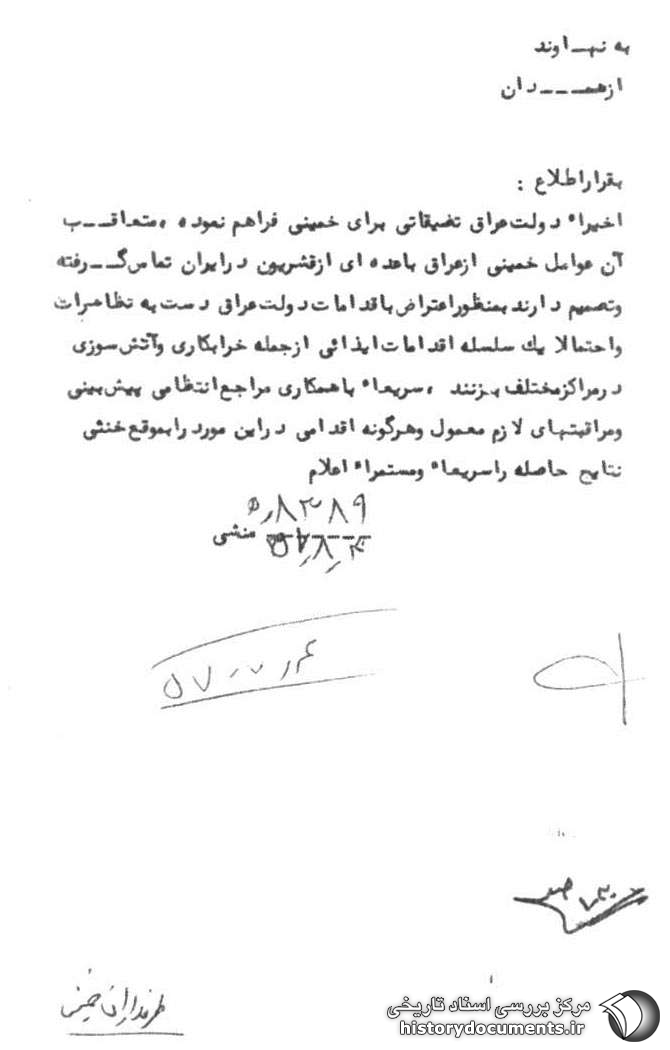 به نهــاوند
ازهمـــدان
بقراراطلاع :
اخیراً دولت‌عراق تضیقاتی برای خمینی فراهم نموده ، متعاقــب
آن عوامل خمینی ازعراق باعده ای ازقشریون درایران تماس‌گــرفته
وتصمیم دارند بمنظوراعتراض باقدامات‌دولت‌عراق دست به تظاهرات
واحتمالا یك سلسله اقدامات‌ایذائی ازجمله خرابکاری وآتش‌سوزی
درمراکزمختلف بزنند ، سریعاً باهمکاری مراجع‌انتظامی پیش‌بینی
ومراقبتهای لازم معمول وهرگونه اقدامی دراین مورد رابموقع خنثی
نتایج حاصله راسریعاً ومستمراً اعلام
۸۳۸۹ره
منشی
طرفداران خمینی
مرکز بررسی اسناد تاریخی
historydocuments.ir